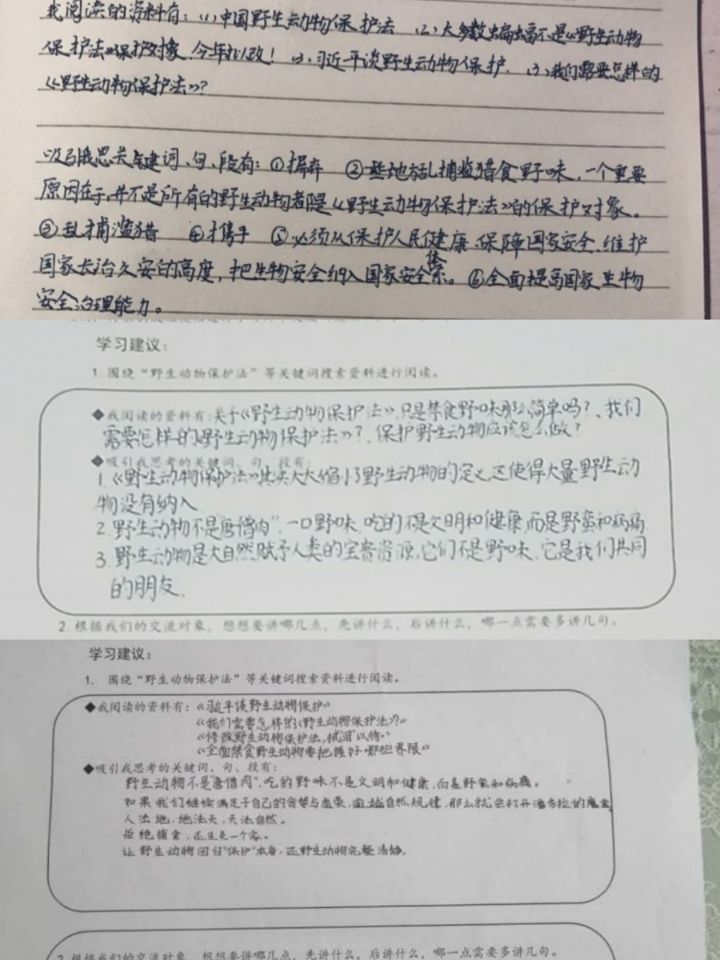 我阅读的资料有：(1)中国野生动物保护法 (2)大多数蝙蝠不是《野生动物
保护法》保护对象，今年拟改！ (3)习近平谈野生动物保护. (3)我们需要怎样的
《野生动物保护法》？
吸引我思关键词、句、段有：①摒弃 ②些地方乱捕滥猎食野味，一个重要
原因在于，并不是所有的野生动物都是《野生动物保护法》的保护对象。
③乱捕滥猎 ④携手 ⑤必须从保护人民健康、保障国家安全、维护
国家长治久安的高度，把生物安全纳入国家安全体系。⑥全面提高国家生物
安全治理能力。
学习建议：
1. 围绕“野生动物保护法”等关键词搜索资料进行阅读。
◆我阅读的资料有：关于《野生动物保护法》，只是禁食野味那么简单吗？、我们
需要怎样的《野生动物保护法》？、保护野生动物应该怎么做？
◆吸引我思考的关键词、句、段有：
1.《野生动物保护法》其实大大缩小了野生动物的定义，这使得大量野生动
物没有纳入
2. 野生动物不是“唐僧肉”，一口野味，吃的不是文明和健康，而是野蛮和病痛
3. 野生动物是大自然赋予人类的宝贵资源，它们不是野味，它是我们共同
的朋友.
2. 根据我们的交流对象，想想要讲哪几点，先讲什么，后讲什么，哪一点需要多讲几句。
学习建议：
1. 围绕“野生动物保护法”等关键词搜索资料进行阅读。
◆我阅读的资料有：《习近平谈野生动物保护》
《我们需要怎样的《野生动物保护法》？》
《修改野生动物保护法，拭泪以待》
《全面禁食野生动物要把握好哪些界限》
◆吸引我思考的关键词、句、段有：
野生动物不是“唐僧肉”，吃的野味不是文明和健康，而是野蛮和病痛。
如果我们继续满足于自己的贪婪与虚荣，逾越自然规律，那么就会打开潘多拉的魔盒
人法地，地法天，天法自然。
拒绝捕食，众生是一个家。
让野生动物回归“保护”本身，还野生动物完整法律。
2. 根据我们的交流对象，想想要讲哪几点，先讲什么，后讲什么，哪一点需要多讲几句。